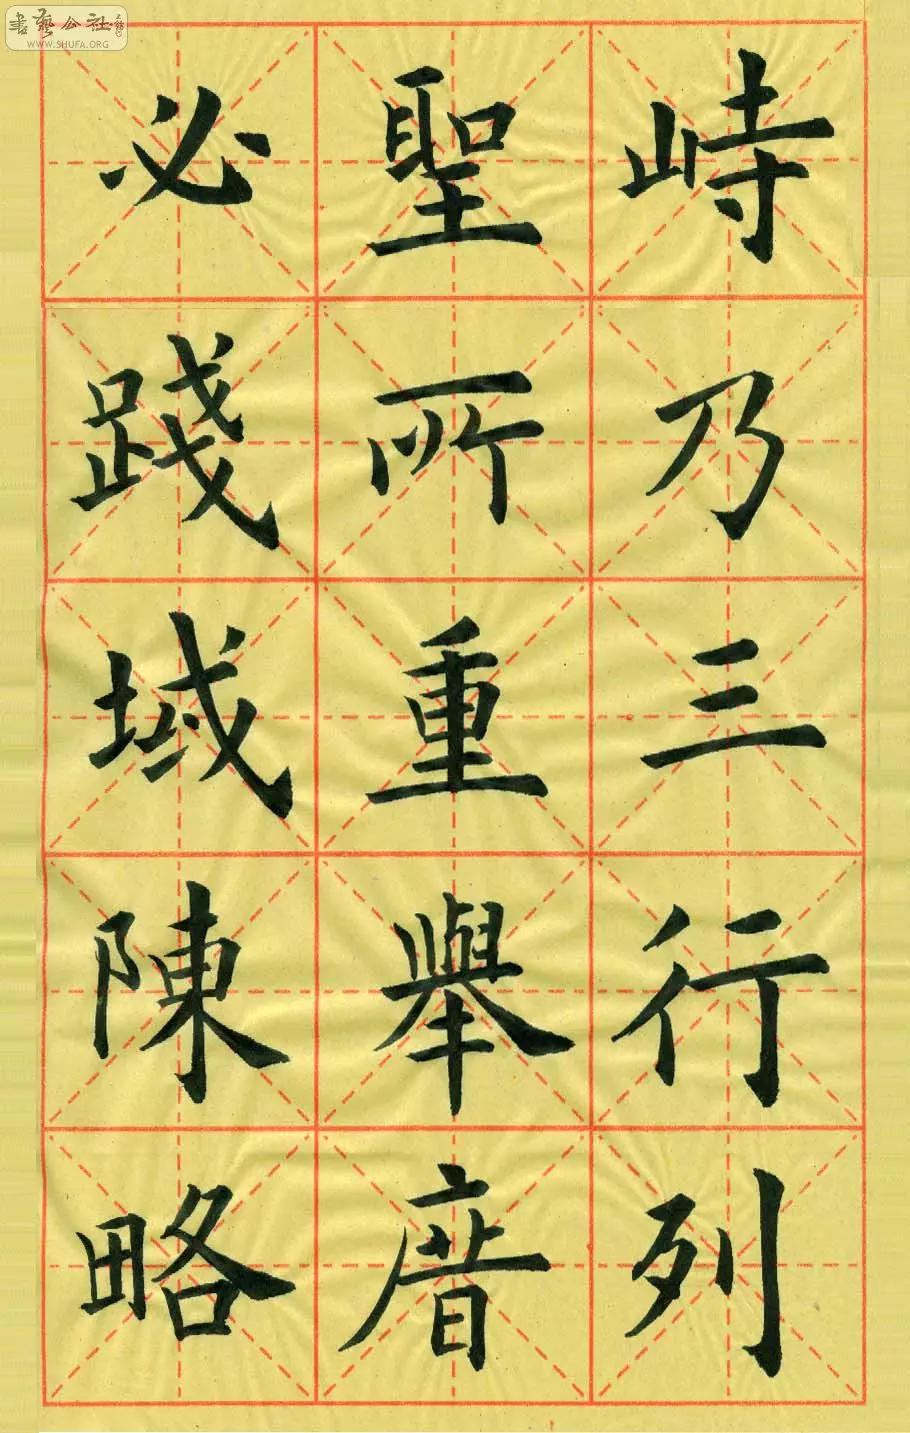 書藝公社
WWW.SHUFA.ORG
峙乃三行列
聖所重舉庴
必踐域陳略